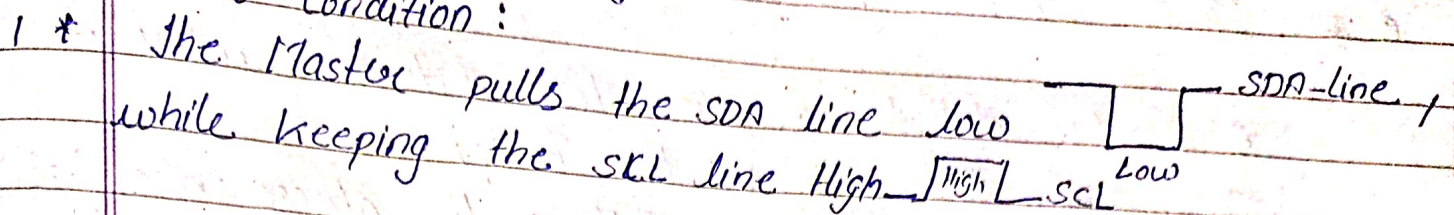 Condition :
1 * The Master pulls the SDA line low SDA-line,
Low
while keeping the SCL line High High SCL